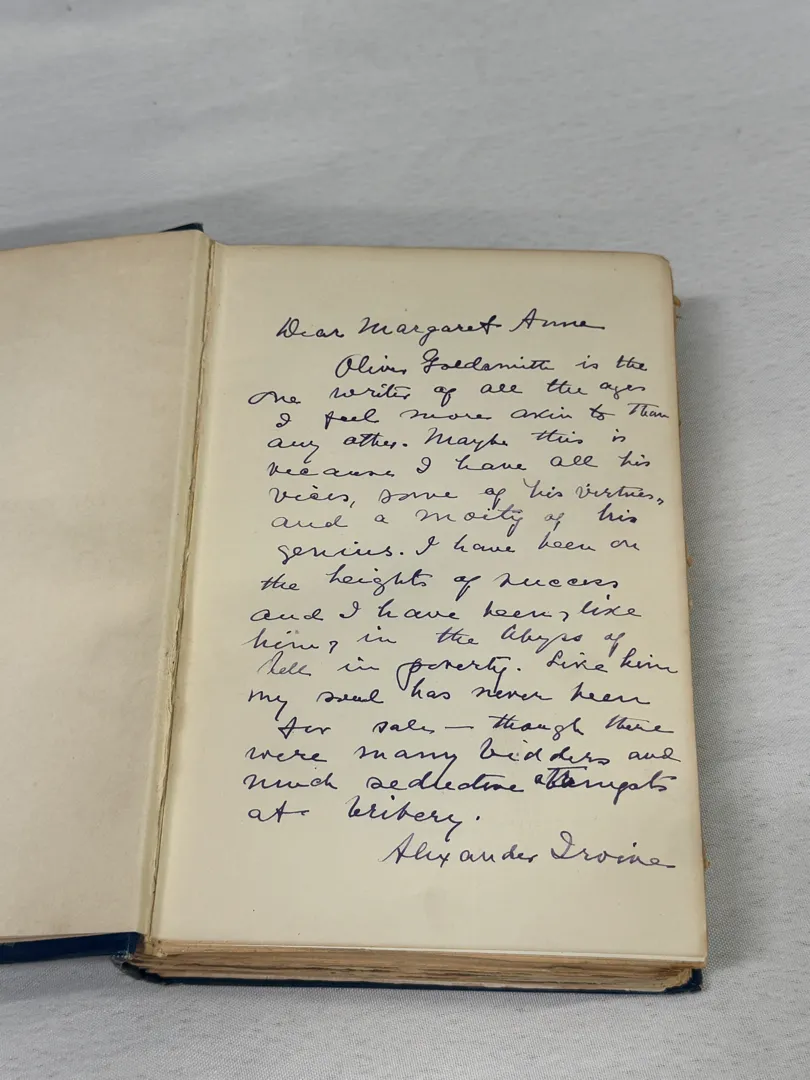 Dear Margaret Anne
Oliver Goldsmith is the
one writer of all the ages
I feel more akin to than
any other. Maybe this is
because I have all his
vices, some of his virtues,
and a moity of his
genius. I have been on
the heights of success
and I have been, like
him, in the abyss of
hell in poverty. Like him
my soul has never been
for sale — though there
were many bidders and
much seductive attempts
at bribery.
Alexander Irvine